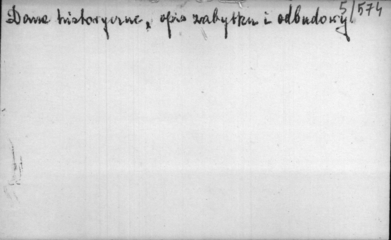 5/574
Dane historyczne, opis zabytku i odbudowy